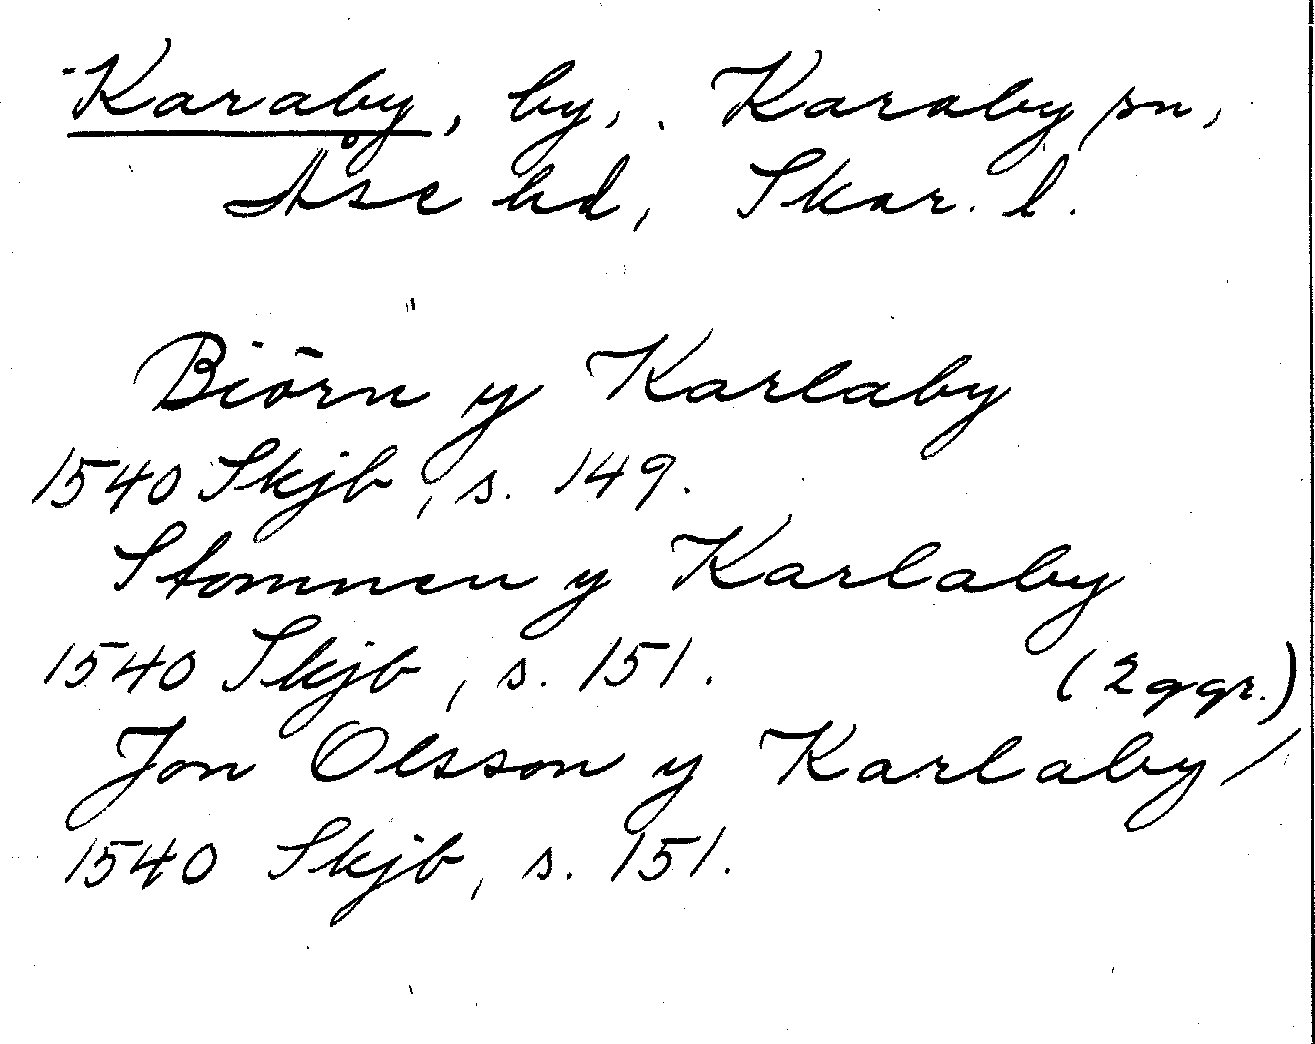 Karaby, by, Karaby sn,
Åse hd, Skar. l.
Biörn y Karlaby
1540 Skjb, s. 149.
Stommen y Karlaby
1540 Skjb, s. 151. (2 ggr.)
Jon Olsson y Karlaby
1540 Skjb, s. 151.